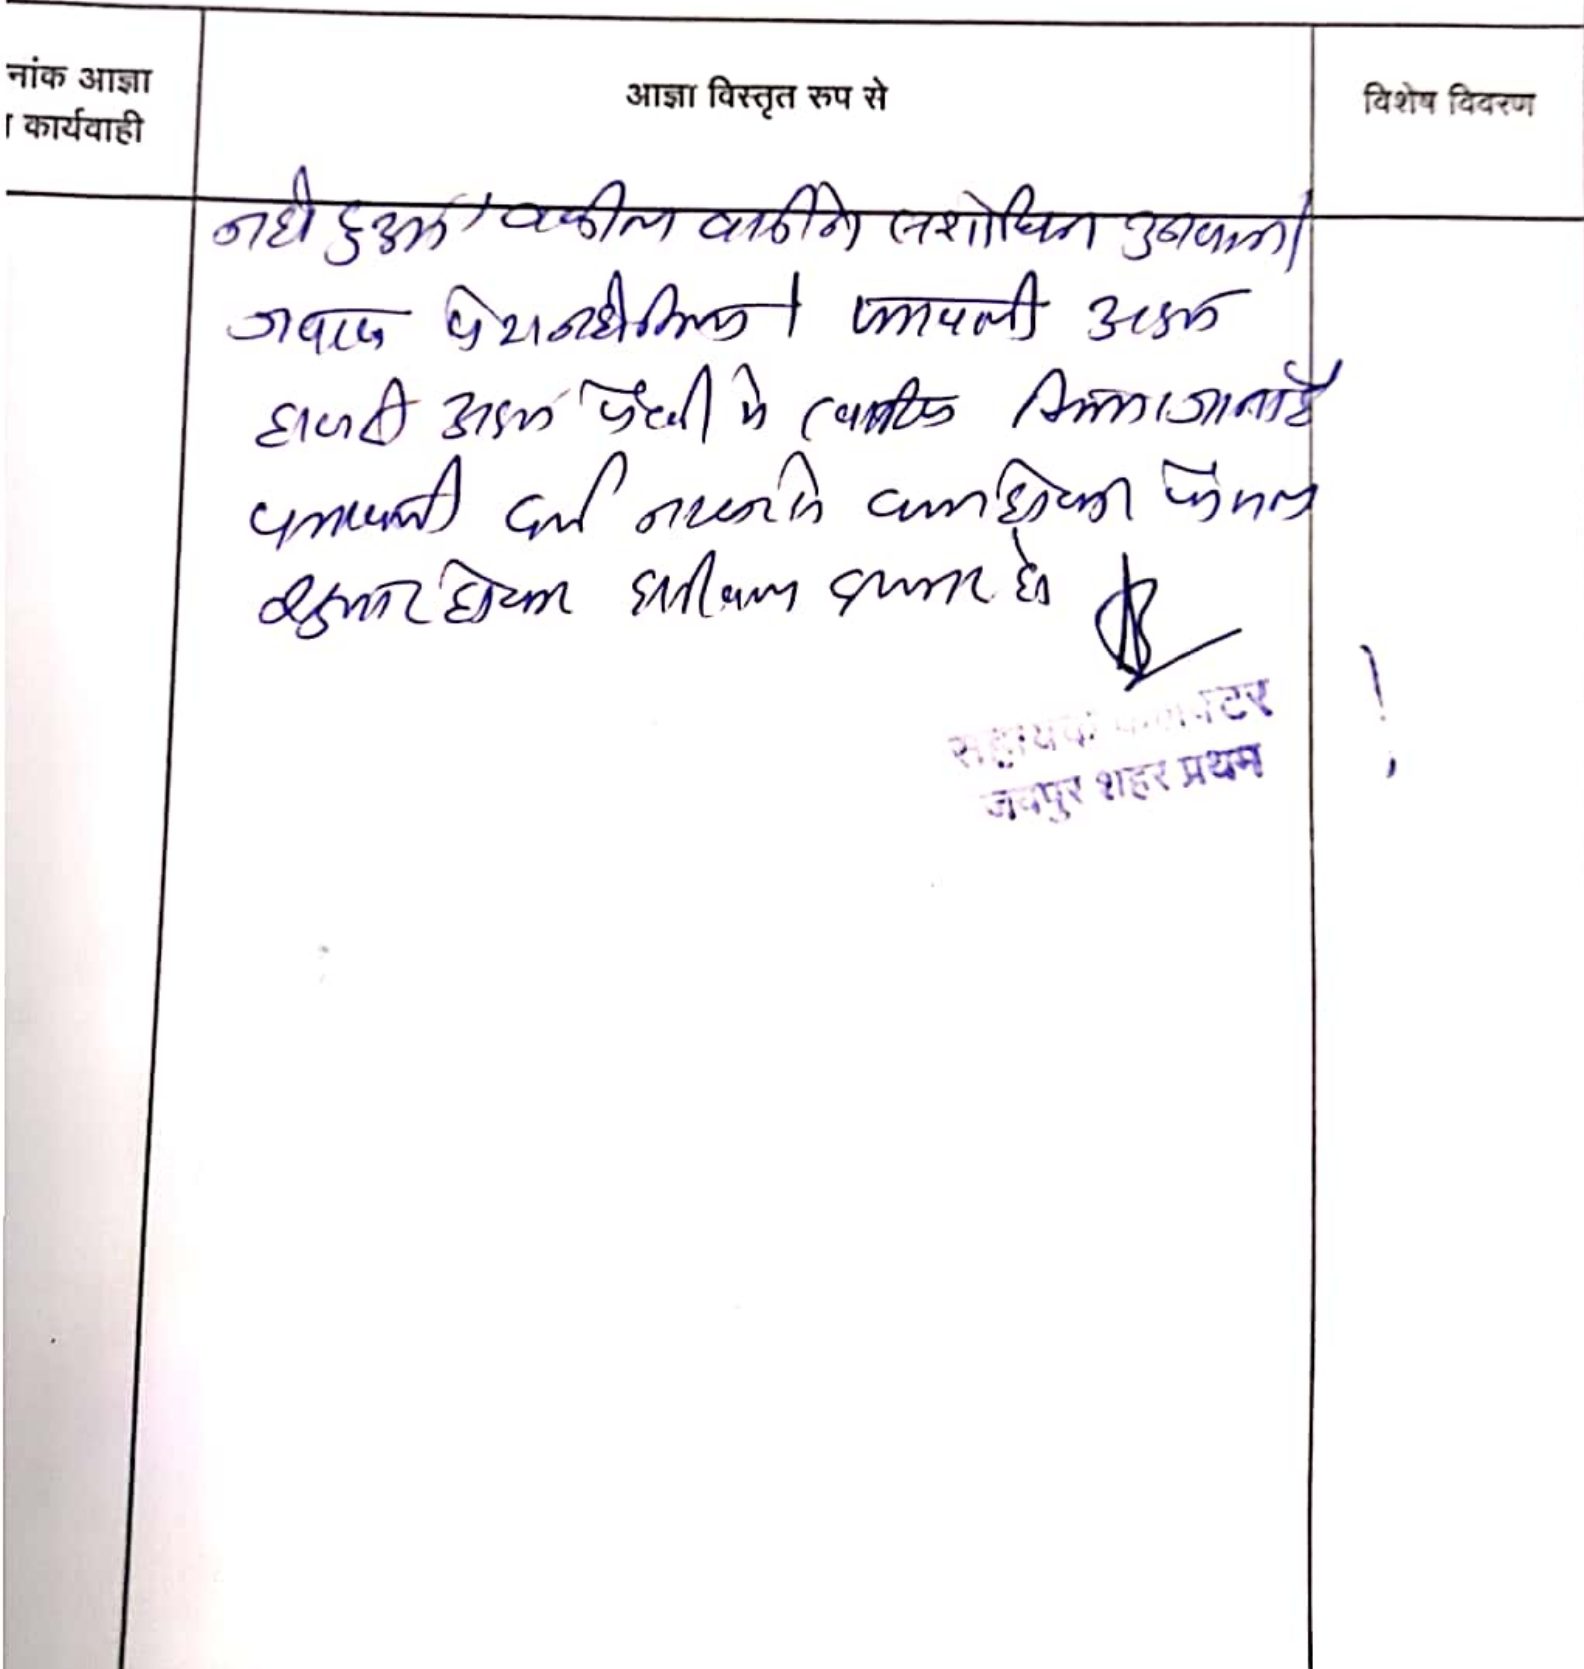 नांक आज्ञा
कार्यवाही
आज्ञा विस्तृत रुप से
विशेष विवरण
नही हुआ। वकील वादी ने संशोधित उनवान
जवाब पेश नही किया। पत्रावली अदम
हाजरी अदम पैरवी मे खारीज किया जाता है
पत्रावली दर्ज नम्बर से कम होकर फैसल
शुमार होकर दाखिल दफ्तर हो
सहायक कलक्टर
जयपुर शहर प्रथम